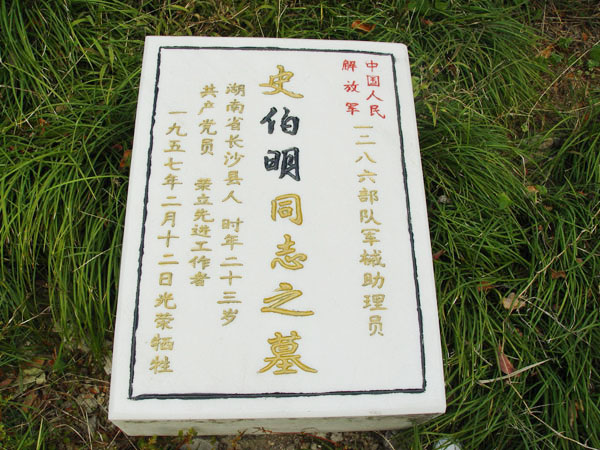 中国人民
解放军
一二八六部队军械助理员
史伯明同志之墓
湖南省长沙县人 时年二十三岁
共产党员 荣立先进工作者
一九五七年二月十二日光荣牺牲